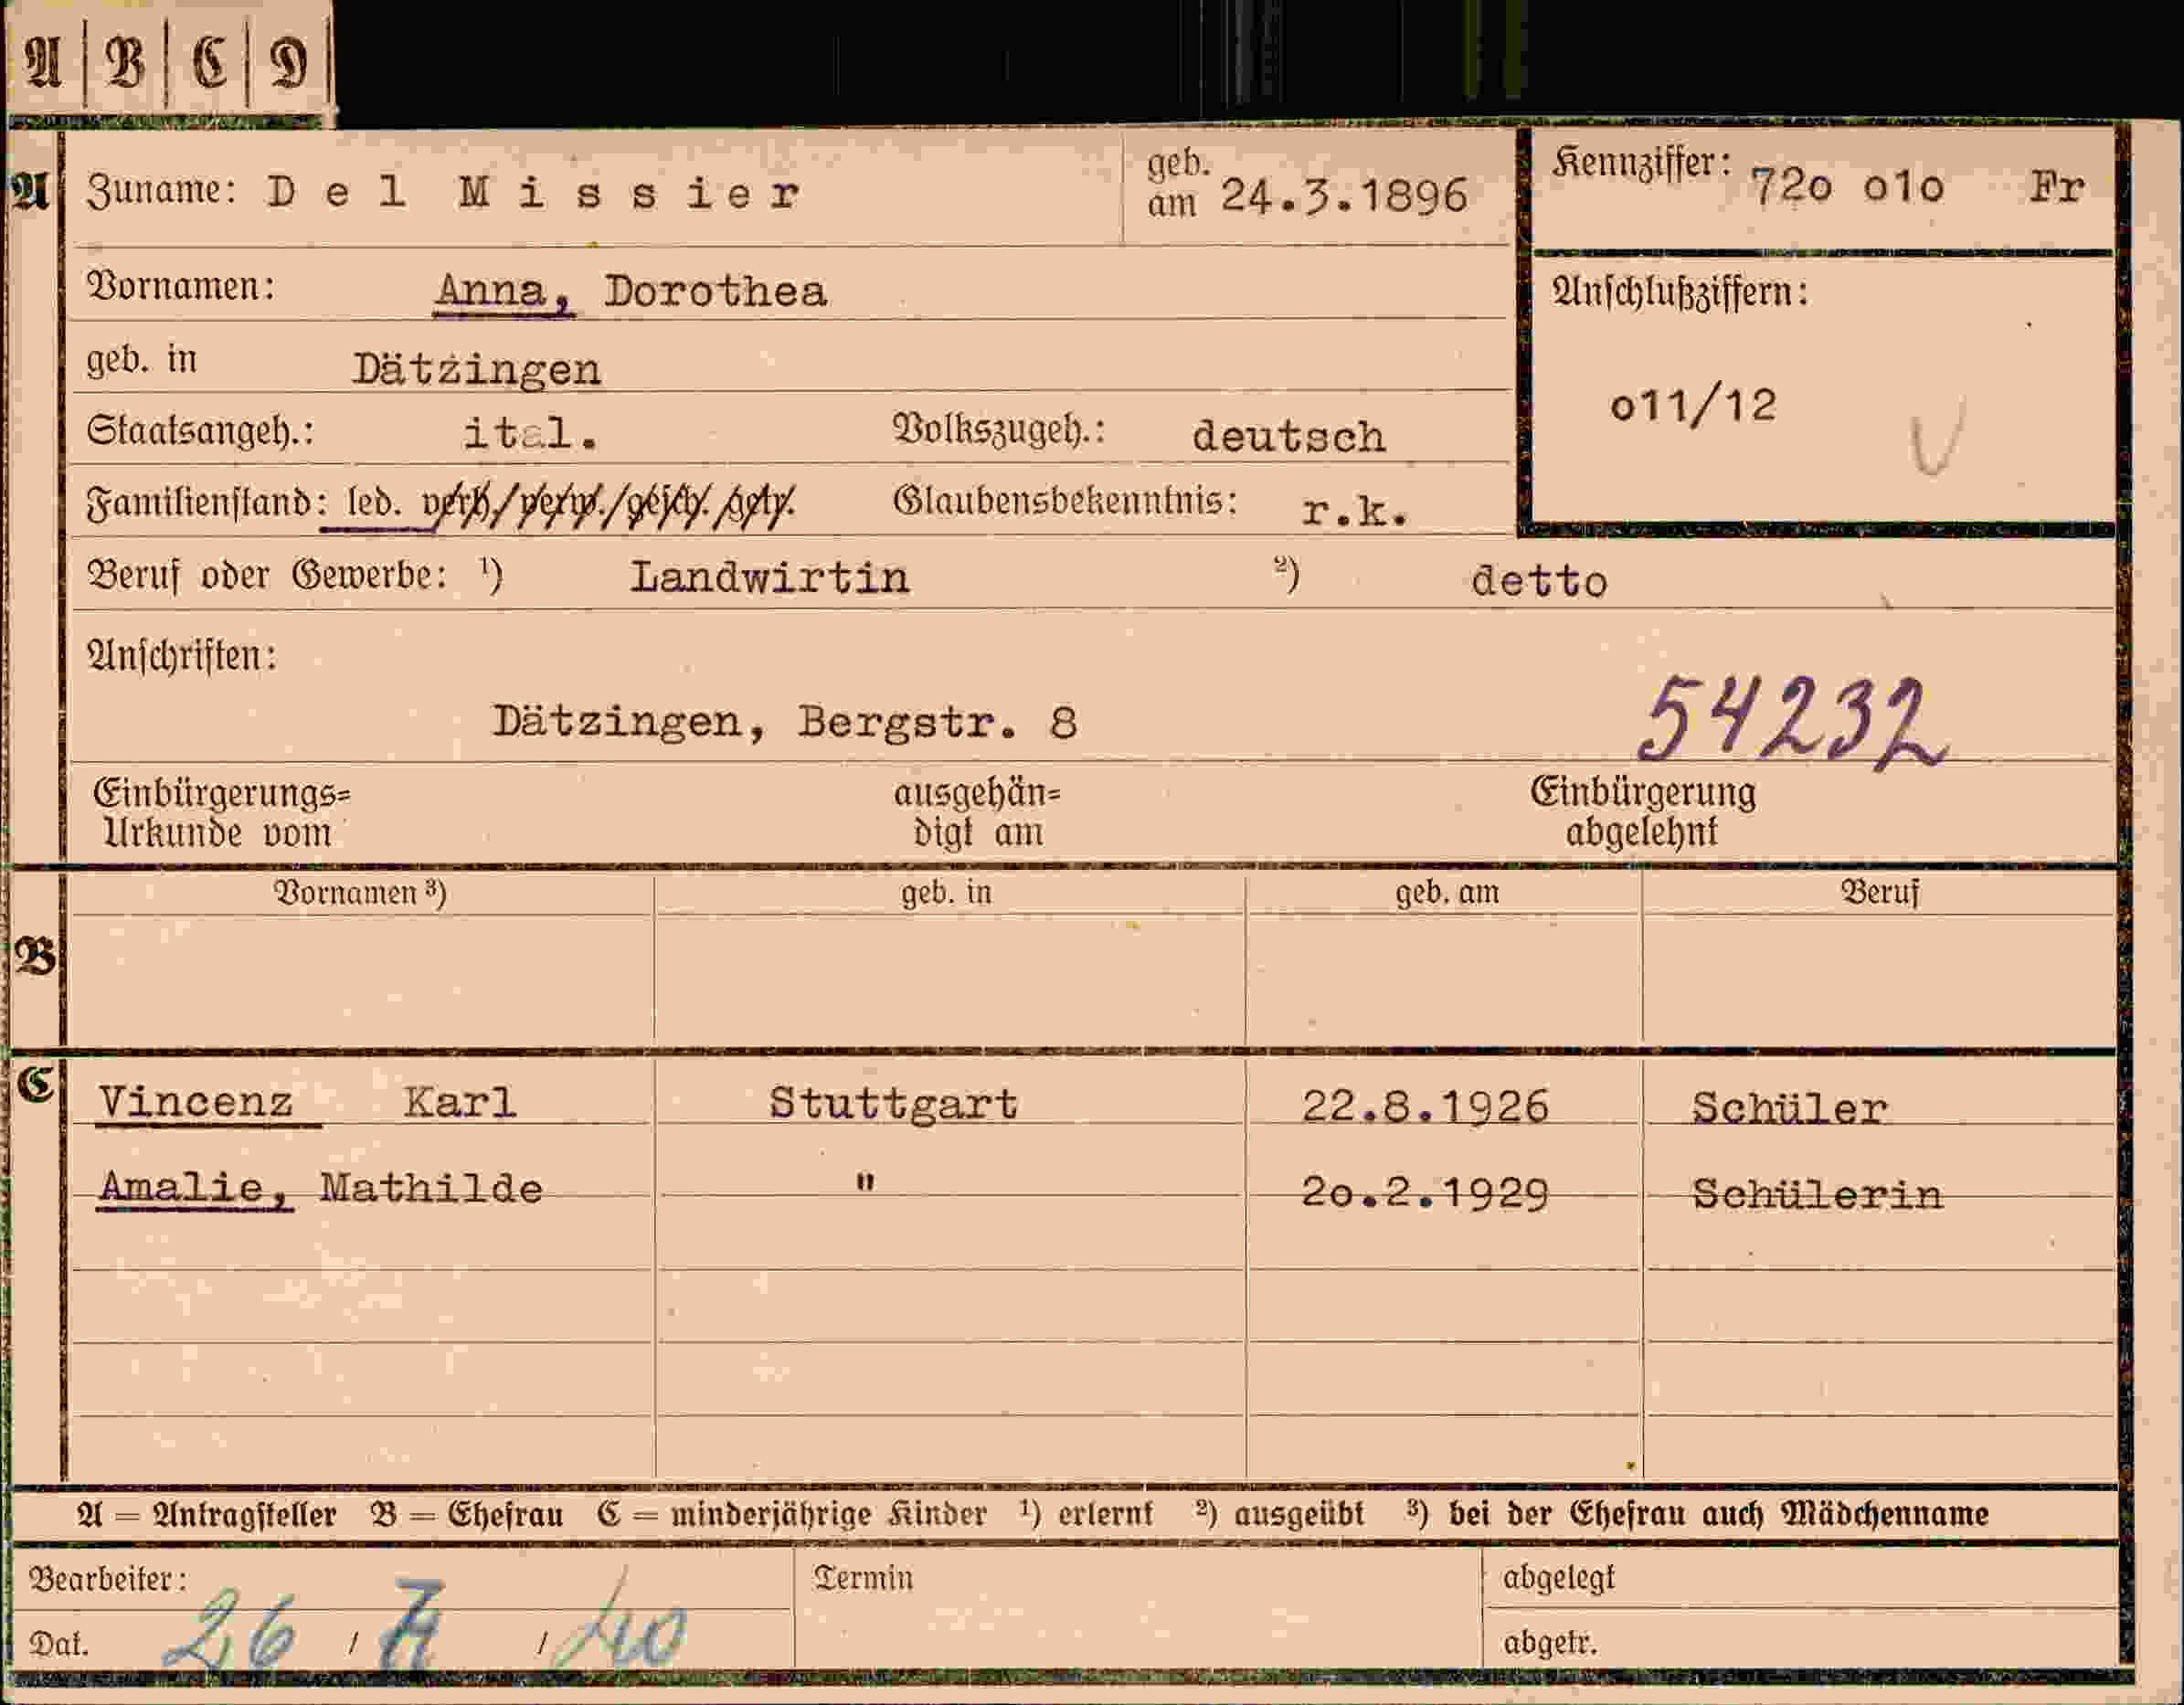 A | B | C | D |
A Zuname: Del Missier geb. am 24.3.1896 Kennziffer: 72o o1o Fr
Vornamen: Anna, Dorothea Anschlußziffern:
geb. in Dätzingen
o11/12
Staatsangeh.: ital. Volkszugeh.: deutsch
Familienstand: led. verh./verw./gesch./getr. Glaubensbekenntnis: r.k.
Beruf oder Gewerbe: ¹) Landwirtin ²) detto
Anschriften:
Dätzingen, Bergstr. 8 54232
Einbürgerungs= ausgehän= Einbürgerung
Urkunde vom digt am abgelehnt
Vornamen ³) geb. in geb. am Beruf
B
C
Vincenz Karl Stuttgart 22.8.1926 Schüler
Amalie, Mathilde " 2o.2.1929 Schülerin
A = Antragsteller B = Ehefrau C = minderjährige Kinder ¹) erlernt ²) ausgeübt ³) bei der Ehefrau auch Mädchenname
Bearbeiter: Termin abgelegt
Dat. 26 / / 40 abgetr.